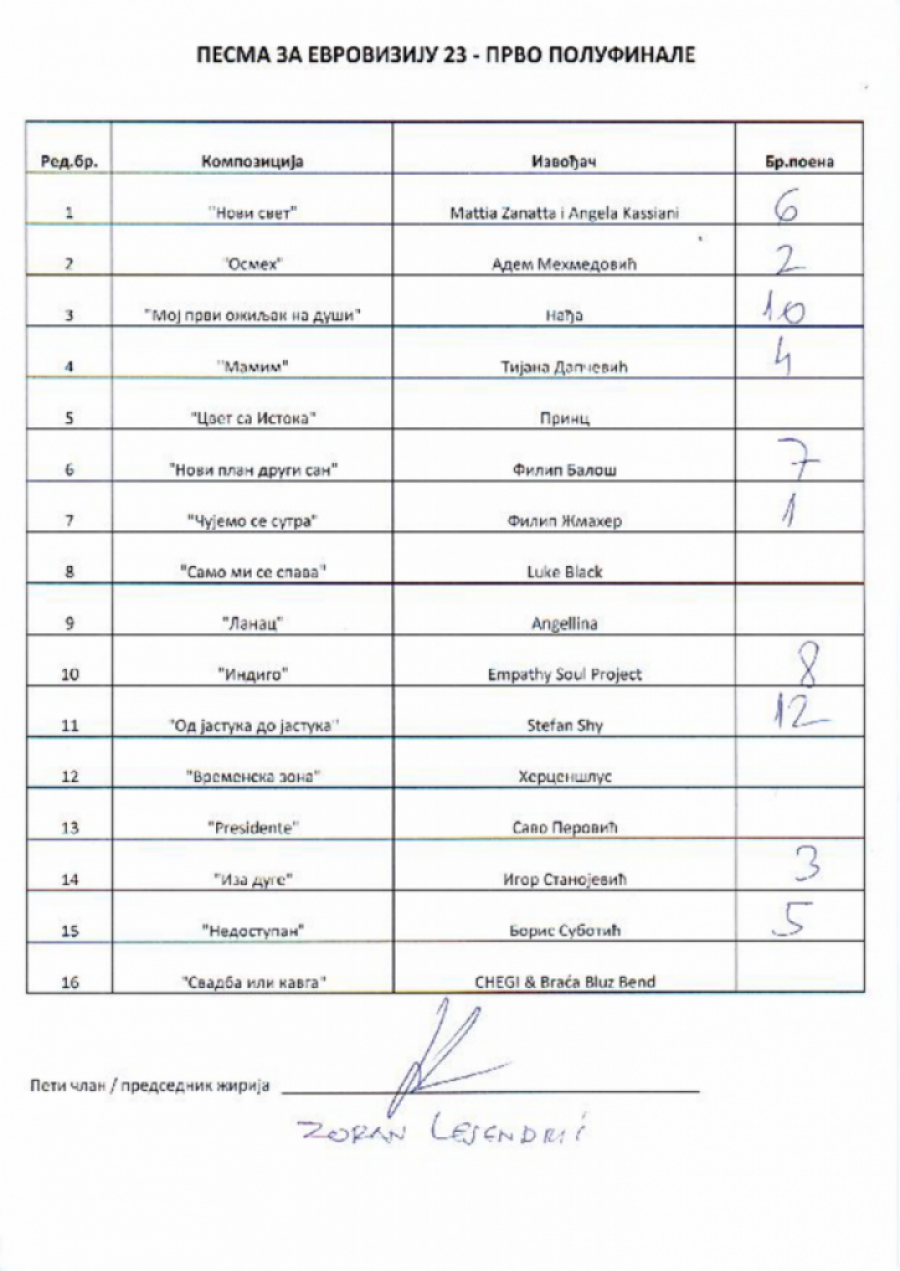 ПЕСМА ЗА ЕВРОВИЗИЈУ 23 - ПРВО ПОЛУФИНАЛЕ
Ред.бр. Композиција Извођач Бр.поена
1 "Нови свет" Mattia Zanatta i Angela Kassiani 6
2 "Осмех" Адем Мехмедовић 2
3 "Мој први ожиљак на души" Нађа 10
4 "Мамим" Тијана Дапчевић 4
5 "Цвет са Истока" Принц
6 "Нови план други сан" Филип Балош 7
7 "Чујемо се сутра" Филип Жмахер 1
8 "Само ми се спава" Luke Black
9 "Ланац" Angellina
10 "Индиго" Empathy Soul Project 8
11 "Од јастука до јастука" Stefan Shy 12
12 "Временска зона" Херценшлус
13 "Presidente" Саво Перовић
14 "Иза дуге" Игор Станојевић 3
15 "Недоступан" Борис Суботић 5
16 "Свадба или кавга" CHEGI & Braća Bluz Bend
Пети члан / председник жирија
ZORAN LESENDRIĆ